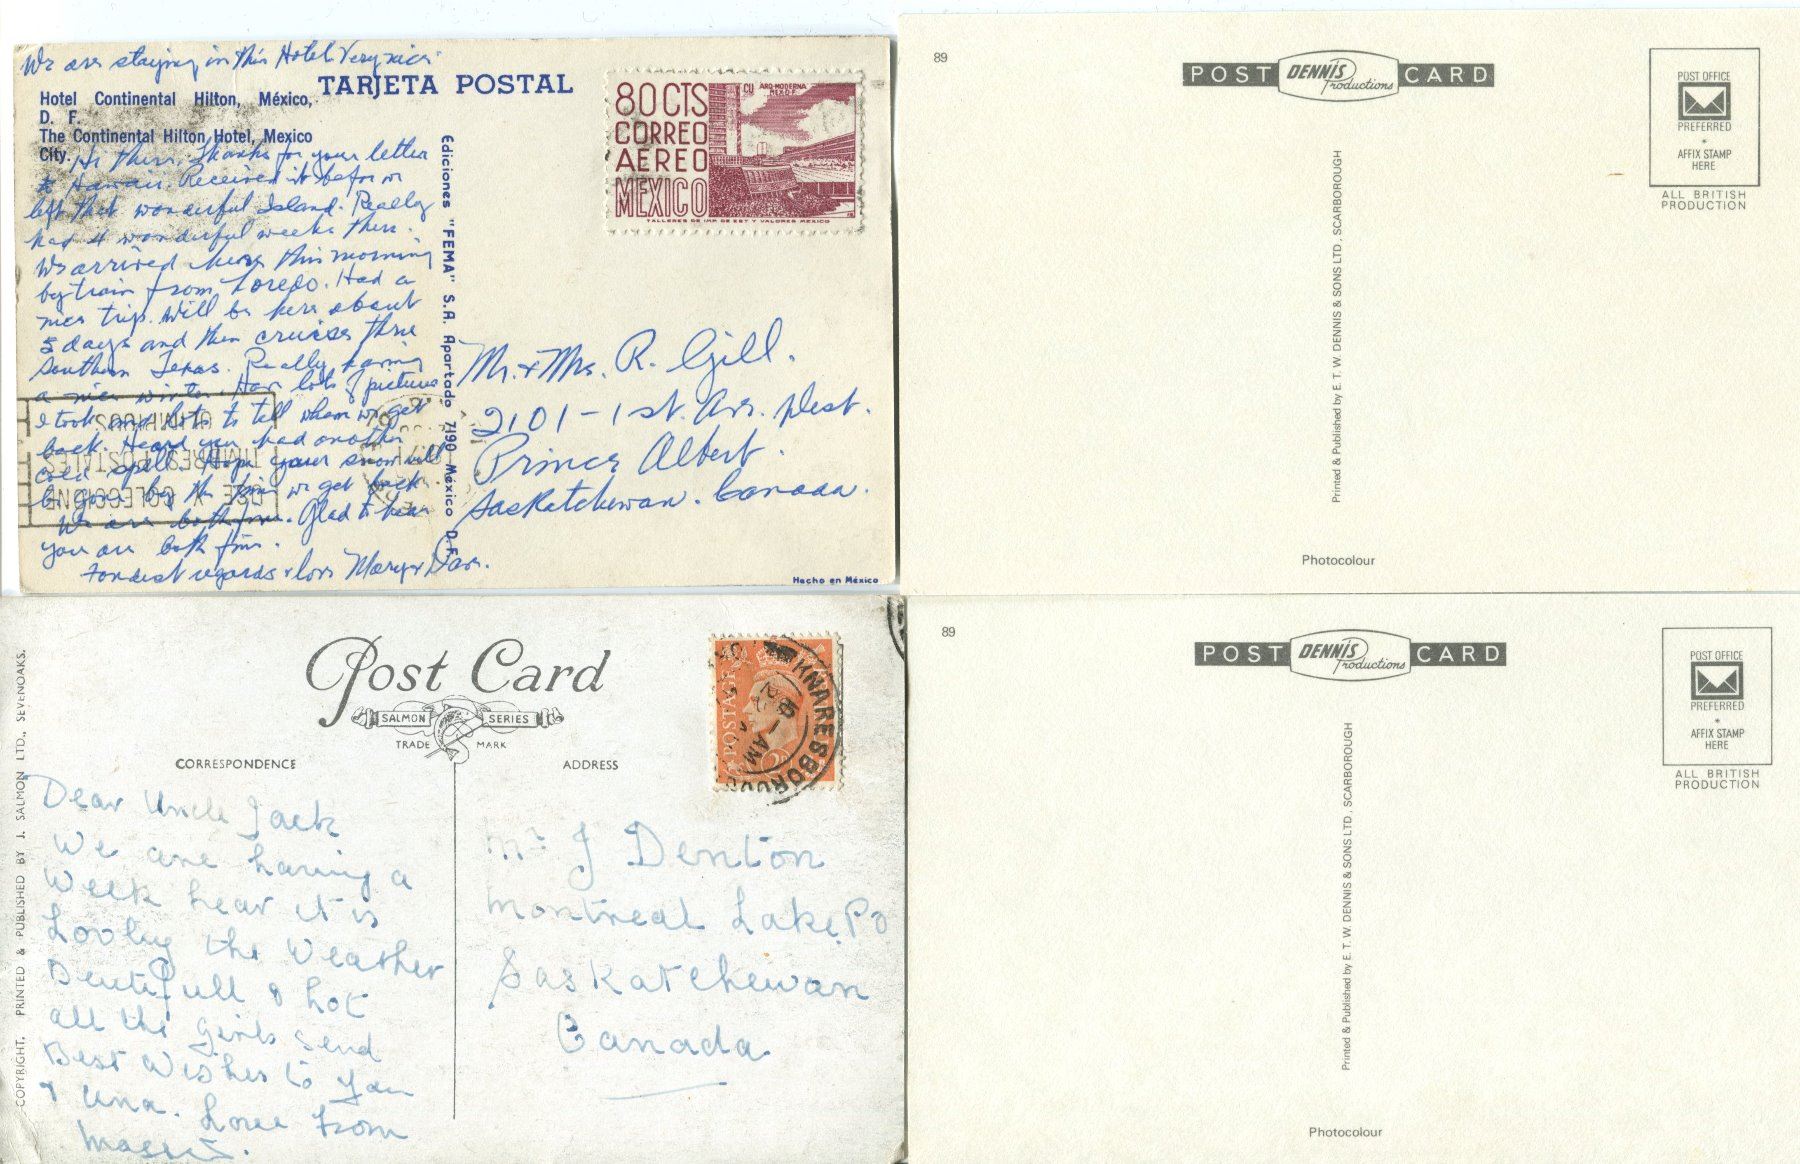 We are staying in this Hotel. Very nice.
TARJETA POSTAL
Hotel Continental Hilton, México,
D. F.
The Continental Hilton Hotel, Mexico
City.
Hi there. Thanks for your letter
to Hawaii. Received it before we
left that wonderful Island. Really
had 4 wonderful weeks there.
We arrived here this morning
by train from Loredo. Had a
nice trip. Will be here about
5 days and then cruise thru
Southern Texas. Really having
a nice winter. Have lots of pictures
I took and lots to tell when we get
back. Heard you had another
cold spell. Hope your snow will
be gone by the time we get back
We are both fine. Glad to hear
you are both fine.
Fondest regards & love Mary & Dave.
Ediciones "FEMA" S.A. Apartado 7190 México D.F.
80 CTS
CORREO
AEREO
MEXICO
CU ARQ-MODERNA
MEX.D.F.
TALLERES DE IMP. DE EST. Y VALORES MEXICO
USE Y COLECCIONE
TIMBRES POSTALES
Mr. & Mrs. R. Gill.
2101 - 1st. Ave. West.
Prince Albert.
Saskatchewan. Canada.
Hecho en México
89
POST DENNIS Productions CARD
POST OFFICE
PREFERRED
*
AFFIX STAMP
HERE
ALL BRITISH
PRODUCTION
Printed & Published by E. T. W. DENNIS & SONS LTD., SCARBOROUGH
Photocolour
Post Card
SALMON SERIES
TRADE MARK
CORRESPONDENCE
ADDRESS
COPYRIGHT. PRINTED & PUBLISHED BY J. SALMON LTD., SEVENOAKS.
POSTAGE
KNARESBOROUGH
Dear Uncle Jack
We are having a
Week hear it is
Lovley the Weather
Beutifull & hot
all the girls send
Best Wishes to you
& Una. Love From
Mr J Denton
Montreal Lake. PO
Saskatchewan
Canada
89
POST DENNIS Productions CARD
POST OFFICE
PREFERRED
*
AFFIX STAMP
HERE
ALL BRITISH
PRODUCTION
Printed & Published by E. T. W. DENNIS & SONS LTD., SCARBOROUGH
Photocolour